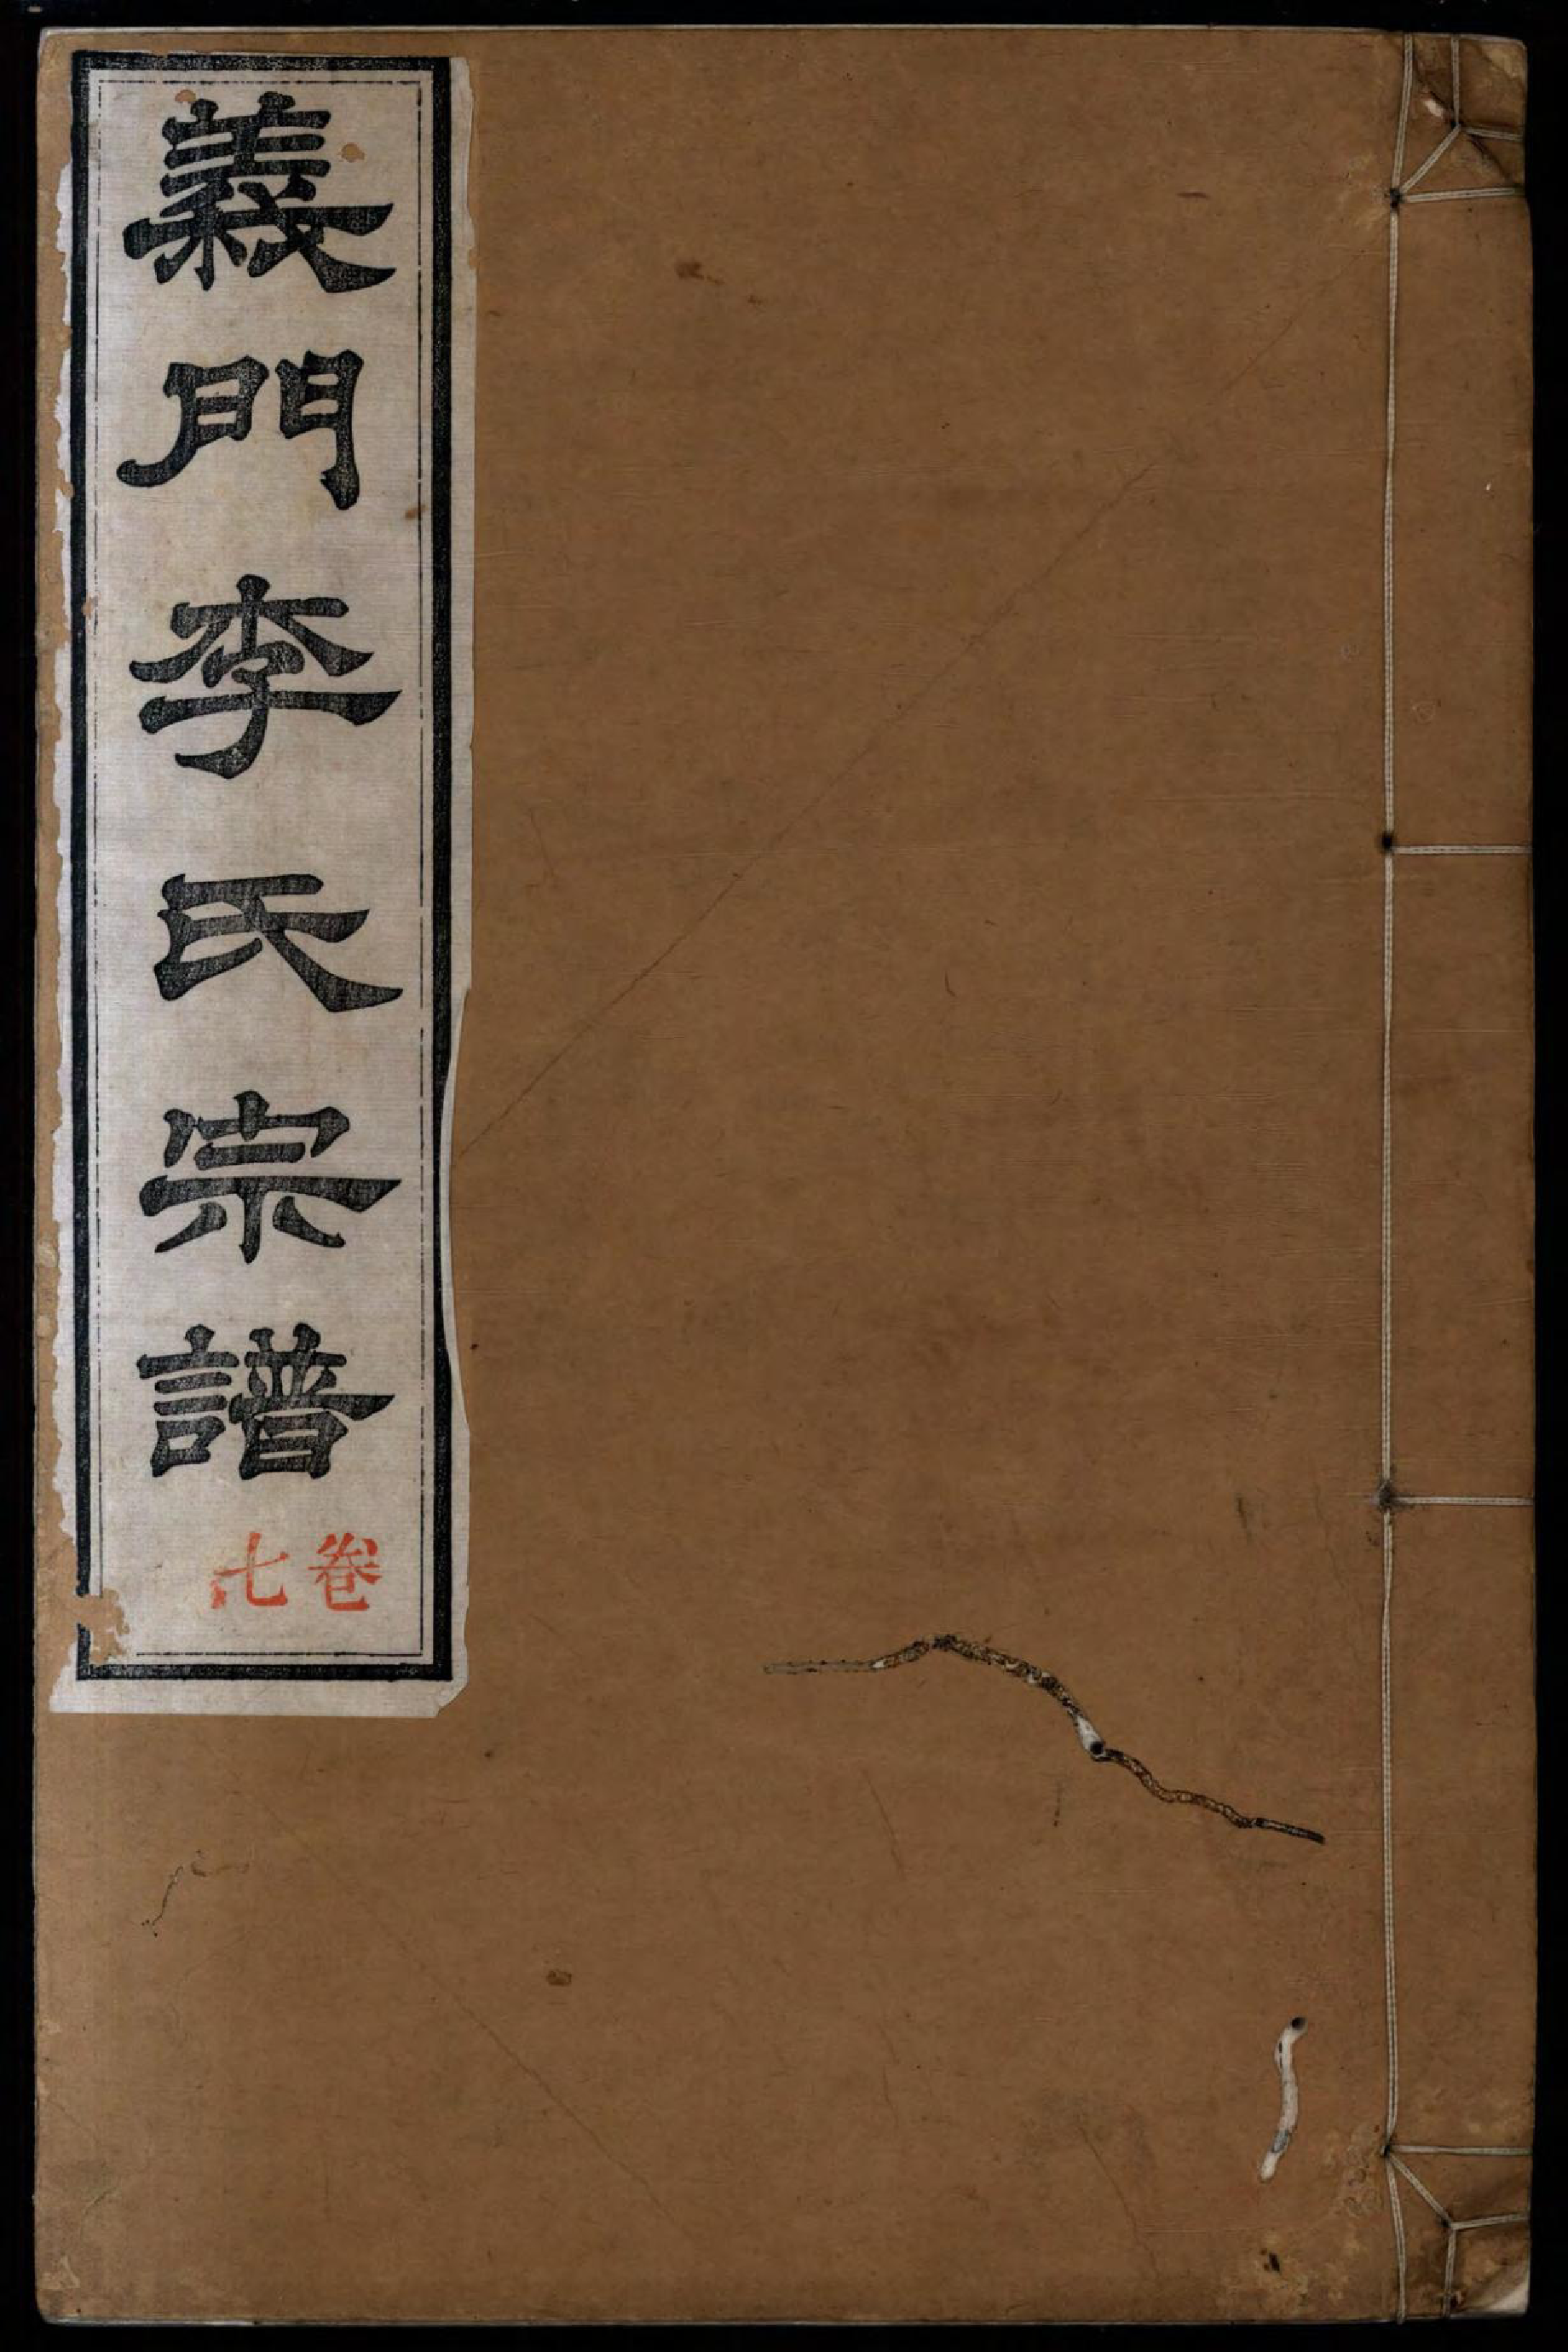 義門李氏宗譜
卷七